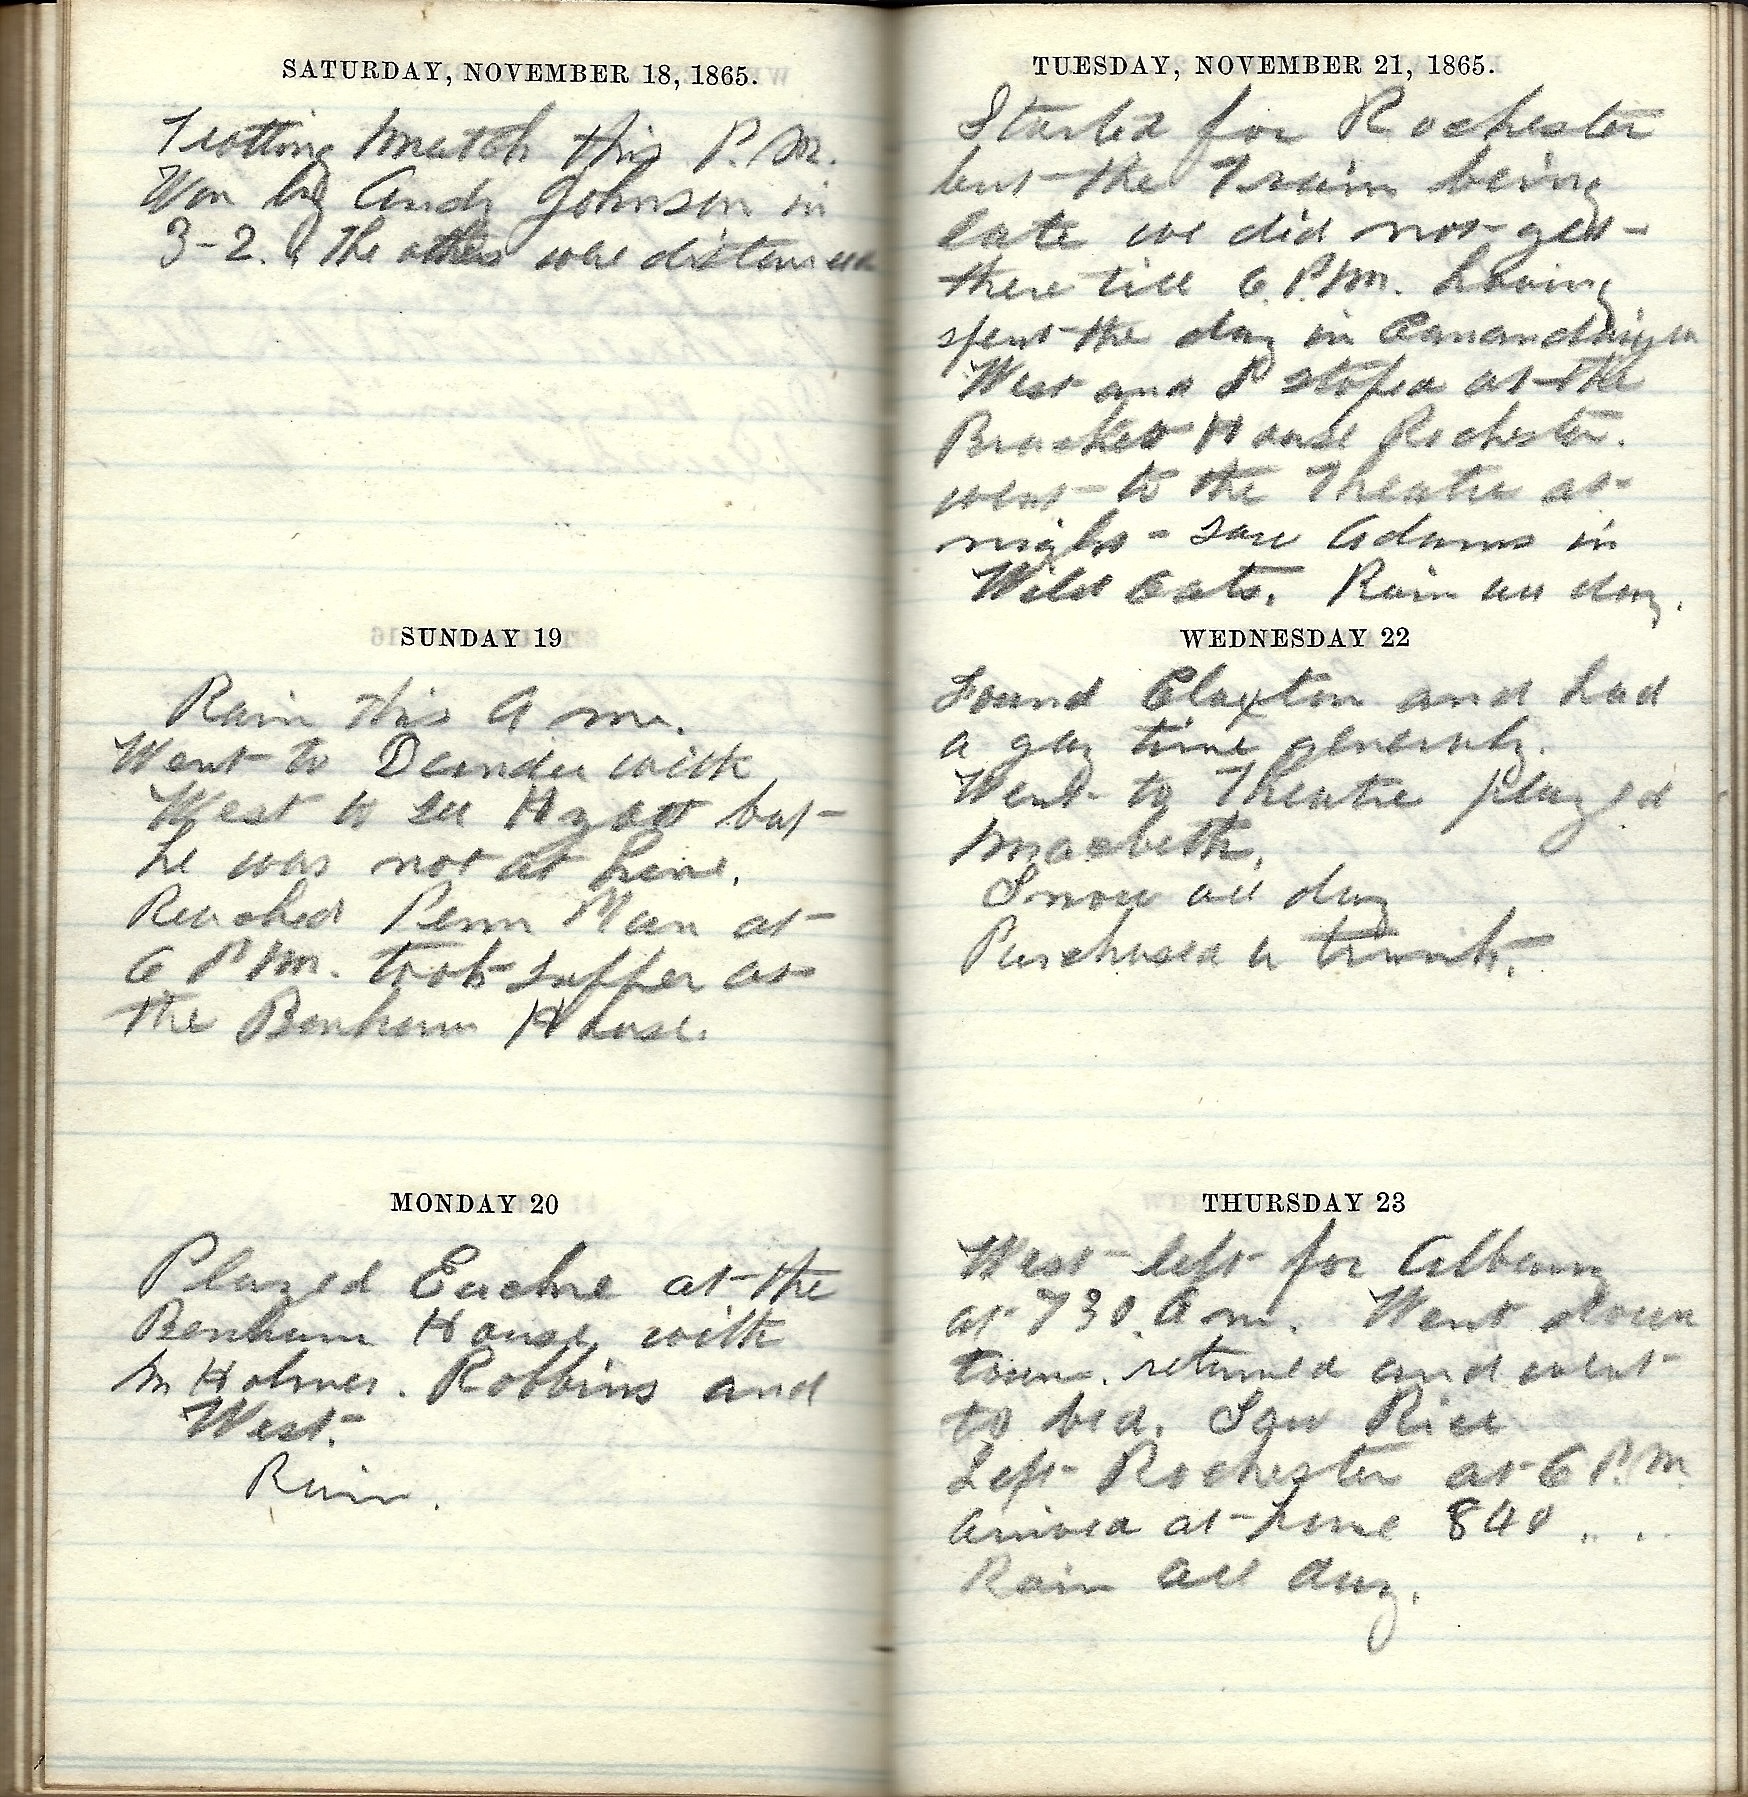 SATURDAY, NOVEMBER 18, 1865.
Trotting Match this P.M.
Won by Andy Johnson in
3-2. The others were distanced
SUNDAY 19
Rain this A.M.
Went to Dundee with
West to see Hyatt but
he was not at home.
Reached Penn Yan at
6 P.M. took supper at
the Benham House.
MONDAY 20
Played Euchre at the
Benham House with
M Holmes. Robbins and
West.
Rain.
TUESDAY, NOVEMBER 21, 1865.
Started for Rochester
but the Train being
late we did not get
there till 6. P.M. having
spent the day in Canandaigua
West and I stoped at the
Bracket House Rochester.
went to the Theatre at
night - saw Adams in
Wild Oats. Rain all day.
WEDNESDAY 22
Found Claxton and had
a gay time generaly.
Went to Theatre played
Macbeth.
Snow all day
Purchased a trunk.
THURSDAY 23
West left for Albany
at 730. A.m. Went down
town. returned and went
to bed. Saw Rice
Left Rochester at 6 P.M.
arrived at home 840 " "
Rain all day.